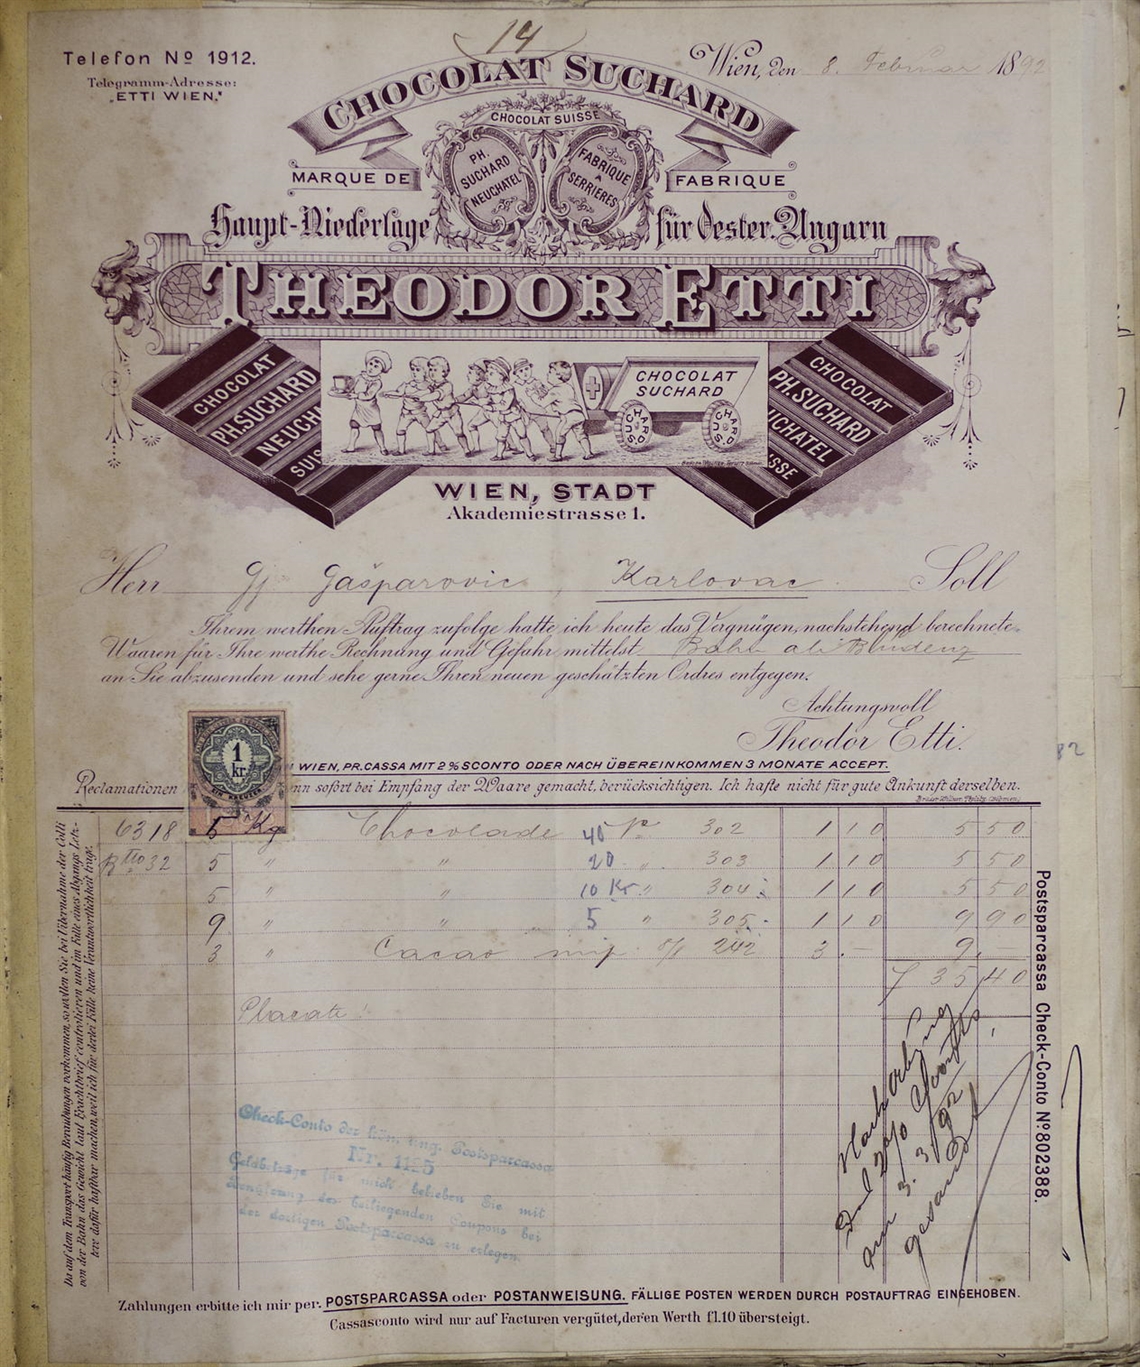 14
Telefon Nº 1912.
Telegramm-Adresse:
„ETTI WIEN."
Wien, den 8. Februar 1892
CHOCOLAT SUCHARD
CHOCOLAT SUISSE
PH. SUCHARD NEUCHATEL
FABRIQUE A SERRIÈRES
MARQUE DE FABRIQUE
Haupt-Niederlage für Oester.-Ungarn
THEODOR ETTI
CHOCOLAT
PH. SUCHARD
NEUCH
SUIS
CHOCOLAT
SUCHARD
SUCHARD
SUCHARD
CHOCOLAT
PH. SUCHARD
UCHATEL
SSE
WIEN, STADT
Akademiestrasse 1.
Herr Gj. Gašparovic, Karlovac Soll
Ihrem werthen Auftrag zufolge hatte ich heute das Vergnügen, nachstehend berechnete
Waaren für Ihre werthe Rechnung und Gefahr mittelst Bahn ab Bludenz
an Sie abzusenden und sehe gerne Ihren neuen geschätzten Ordres entgegen.
Achtungsvoll
Theodor Etti.
1 kr.
EIN KREUZER
WIEN, PR. CASSA MIT 2% SCONTO ODER NACH ÜBEREINKOMMEN 3 MONATE ACCEPT.
Reclamationen nn sofort bei Empfang der Waare gemacht, berücksichtigen. Ich hafte nicht für gute Ankunft derselben.
6318 5 Kg Chocolade 40 Nº 302 1 10 5 50
Btto 32 5 " " 20 " 303 1 10 5 50
5 " " 10 Kr. " 304 1 10 5 50
9 " " 5 " 305 1 10 9 90
3 " Cacao 242 3 – 9 –
35 40
Placate!
Check-Conto der kön. ung. Postsparcassa
Nr. 1125
Geldbeträge für mich belieben Sie mit
Benützung des beiliegenden Coupons bei
der dortigen Postsparcassa zu erlegen.
2% Sconto
am 3. 3/92
gesandt
Da auf dem Transport häufig Beraubungen vorkommen, so wollen Sie bei Übernahme der Colli
von der Bahn das Gewicht laut Frachtbrief controlieren und im Falle eines Abgangs Letz-
tere dafür haftbar machen, weil ich für derlei Fälle keine Verantwortlichkeit trage.
Postsparcassa Check-Conto Nº 802388.
Zahlungen erbitte ich mir per. POSTSPARCASSA oder POSTANWEISUNG. FÄLLIGE POSTEN WERDEN DURCH POSTAUFTRAG EINGEHOBEN.
Cassasconto wird nur auf Facturen vergütet, deren Werth fl. 10 übersteigt.